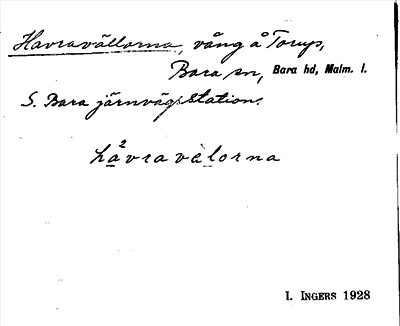 Havravällorna, vång å Torup,
Bara sn, Bara hd, Malm. l.
S. Bara järnvägsstation.
ha²vravelorna
I. INGERS 1928